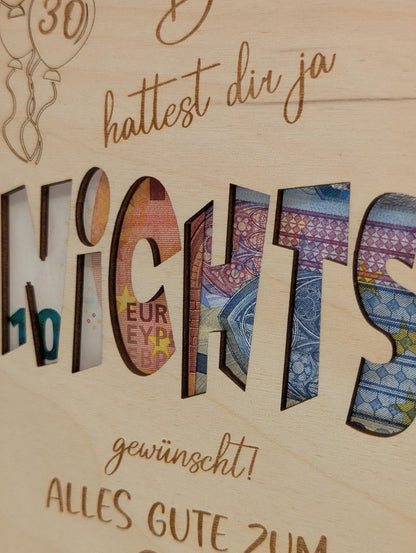 30
D
hattest dir ja
NiCHTS
10
EUR
EYP
gewünscht!
ALLES GUTE ZUM